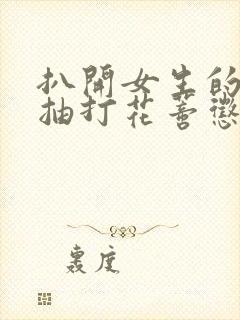 扒開女生的
抽打花懲
度